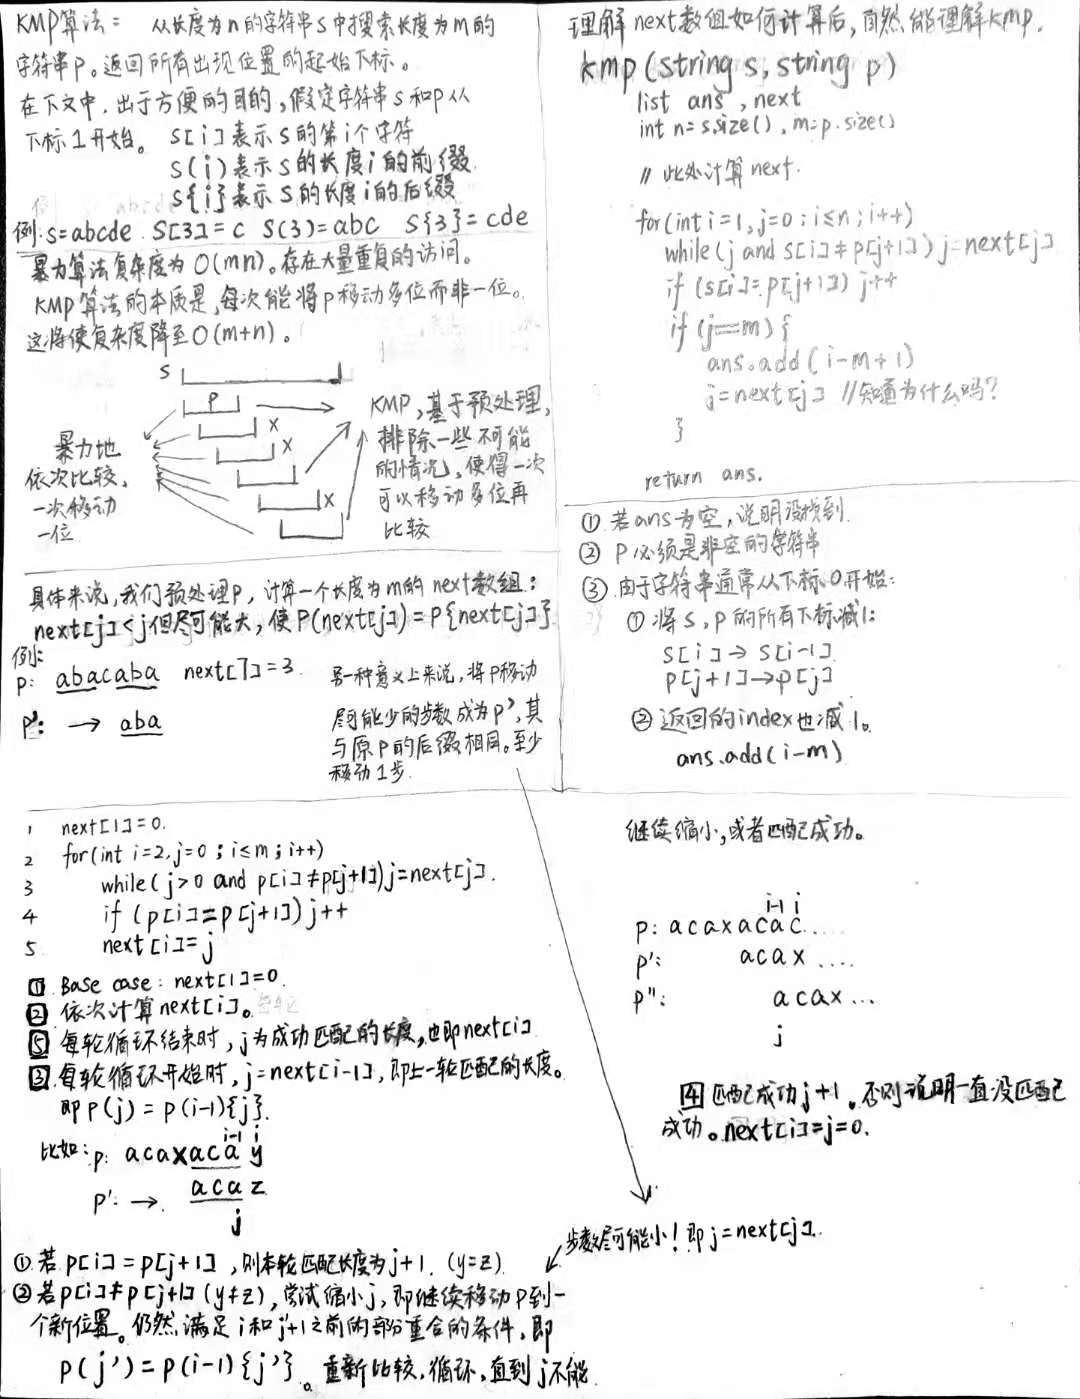 KMP算法: 从长度为n的字符串s中搜索长度为m的
字符串p。返回所有出现位置的起始下标。
在下文中,出于方便的目的,假定字符串s和p从
下标1开始。 s[i]表示s的第i个字符
s(i)表示s的长度i的前缀
s{i}表示s的长度i的后缀
例:s=abcde. s[3]=c s(3)=abc s{3}=cde
暴力算法复杂度为O(mn)。存在大量重复的访问。
KMP算法的本质是,每次能将p移动多位而非一位。
这将使复杂度降至O(m+n)。
s
p
x
x
x
暴力地
依次比较,
一次移动
一位
KMP,基于预处理,
排除一些不可能
的情况,使得一次
可以移动多位再
比较
具体来说,我们预处理p,计算一个长度为m的next数组:
next[j]<j但尽可能大,使P(next[j])=P{next[j]}
例:
p: abacaba next[7]=3.
p': → aba
另一种意义上来说,将p移动
尽可能少的步数成为p',其
与原p的后缀相同。至少
移动1步.
1 next[1]=0.
2 for(int i=2,j=0;i≤m;i++)
3 while(j>0 and p[i]≠p[j+1])j=next[j].
4 if(p[i]==p[j+1])j++
5. next[i]=j
1 Base case: next[1]=0.
2 依次计算next[i]。
5 每轮循环结束时,j为成功匹配的长度,也即next[i]
3.每轮循环开始时,j=next[i-1],即上一轮匹配的长度。
即P(j)=P(i-1){j}.
i-1 i
比如:p: acaxacay
p': → acaz
j
①若p[i]=p[j+1],则本轮匹配长度为j+1. (y=z).
②若p[i]≠p[j+1](y≠z),尝试缩小j,即继续移动p到一
个新位置。仍然满足i和j'+1之前的部分重合的条件,即
P(j')=P(i-1){j'}。重新比较,循环,直到j不能
理解next数组如何计算后,自然能理解kmp.
kmp(string s,string p)
list ans,next
int n=s.size(),m=p.size()
// 此处计算next.
for(int i=1,j=0;i≤n;i++)
while(j and s[i]≠p[j+1])j=next[j]
if(s[i]=p[j+1])j++
if(j==m){
ans.add(i-m+1)
j=next[j] //知道为什么吗?
}
return ans.
① 若ans为空,说明没找到
② p必须是非空的字符串
③ 由于字符串通常从下标0开始:
①将s,p的所有下标减1:
s[i]→s[i-1]
p[j+1]→p[j]
②返回的index也减1。
ans.add(i-m)
继续缩小,或者匹配成功。
i-1 i
p: acaxacac.....
p': acax ....
p'': acax...
j
4 匹配成功j+1。否则说明一直没匹配
成功。next[i]=j=0.
步数尽可能小!即j=next[j].